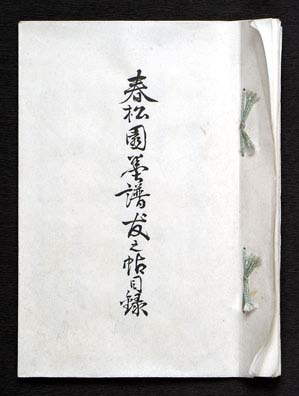 春松園墨譜友之帖目録